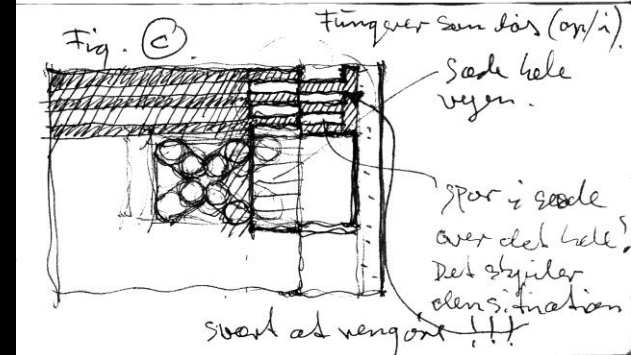 Fig. C
Fungerer som lås (op/i).
Sæde hele
vejen.
Spor i sæde
over det hele?
Det skjuler
den situation
svært at rengøre !!!